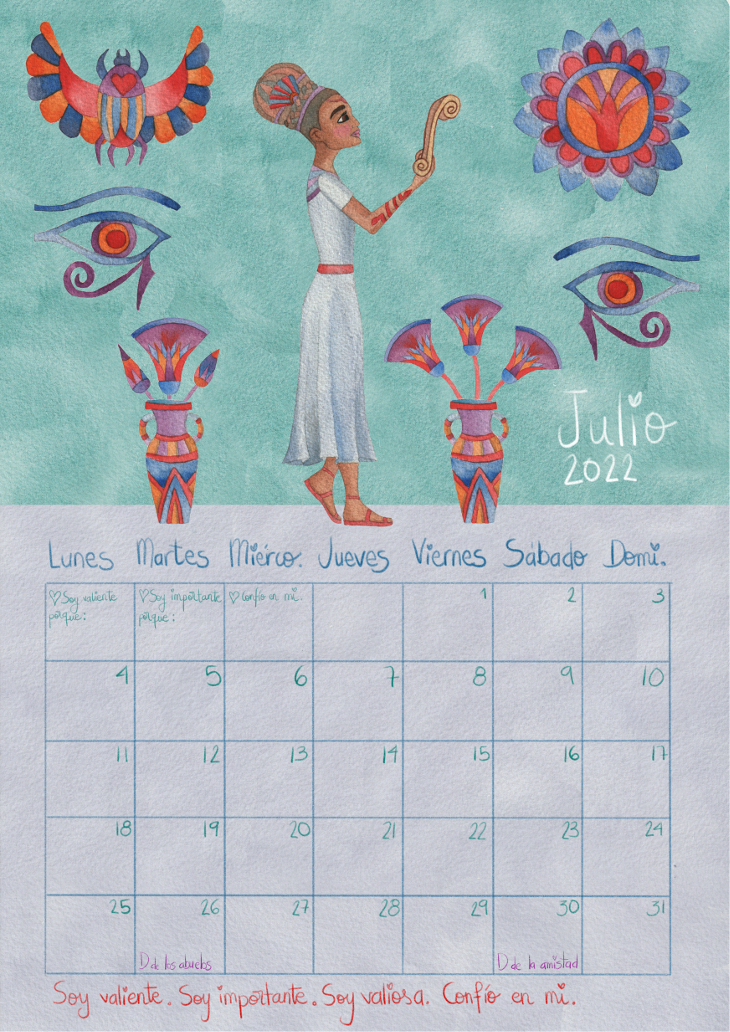 Julio
2022
Lunes Martes Miérco. Jueves Viernes Sábado Domi.
♡Soy valiente ♡Soy importante ♡Confío en mi. 1 2 3
porque: porque:
4 5 6 7 8 9 10
11 12 13 14 15 16 17
18 19 20 21 22 23 24
25 26 27 28 29 30 31
D de los abuelos D de la amistad
Soy valiente. Soy importante. Soy valiosa. Confío en mi.